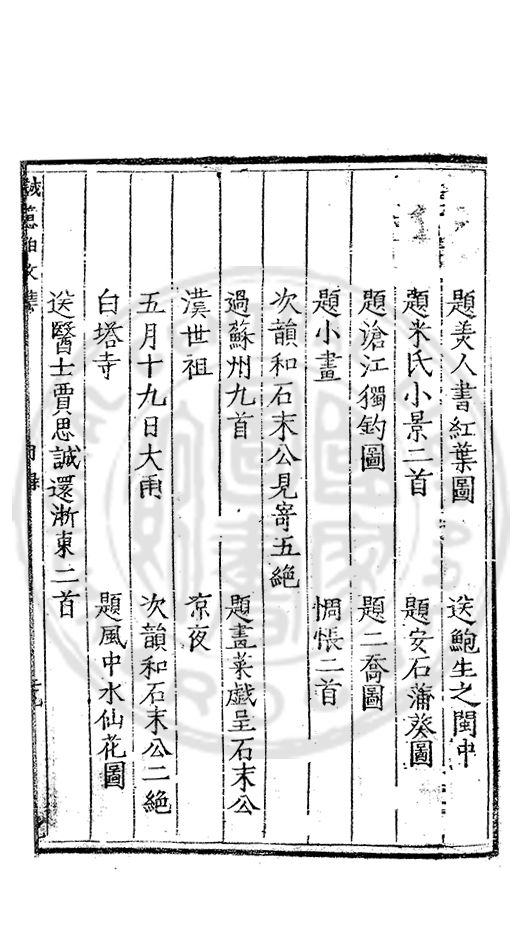 題美人書紅葉圖　送鮑生之閩中
題米氏小景二首　題安石蒲葵圖
題滄江獨釣圖　題二喬圖
題小畫　惆悵二首
次韻和石末公見寄五絕
過蘇州九首　題畫菜戲呈石末公
漢世祖　涼夜
五月十九日大雨　次韻和石末公二絕
白塔寺　題風中水仙花圖
送醫士賈思誠還浙東二首
誠意伯文集